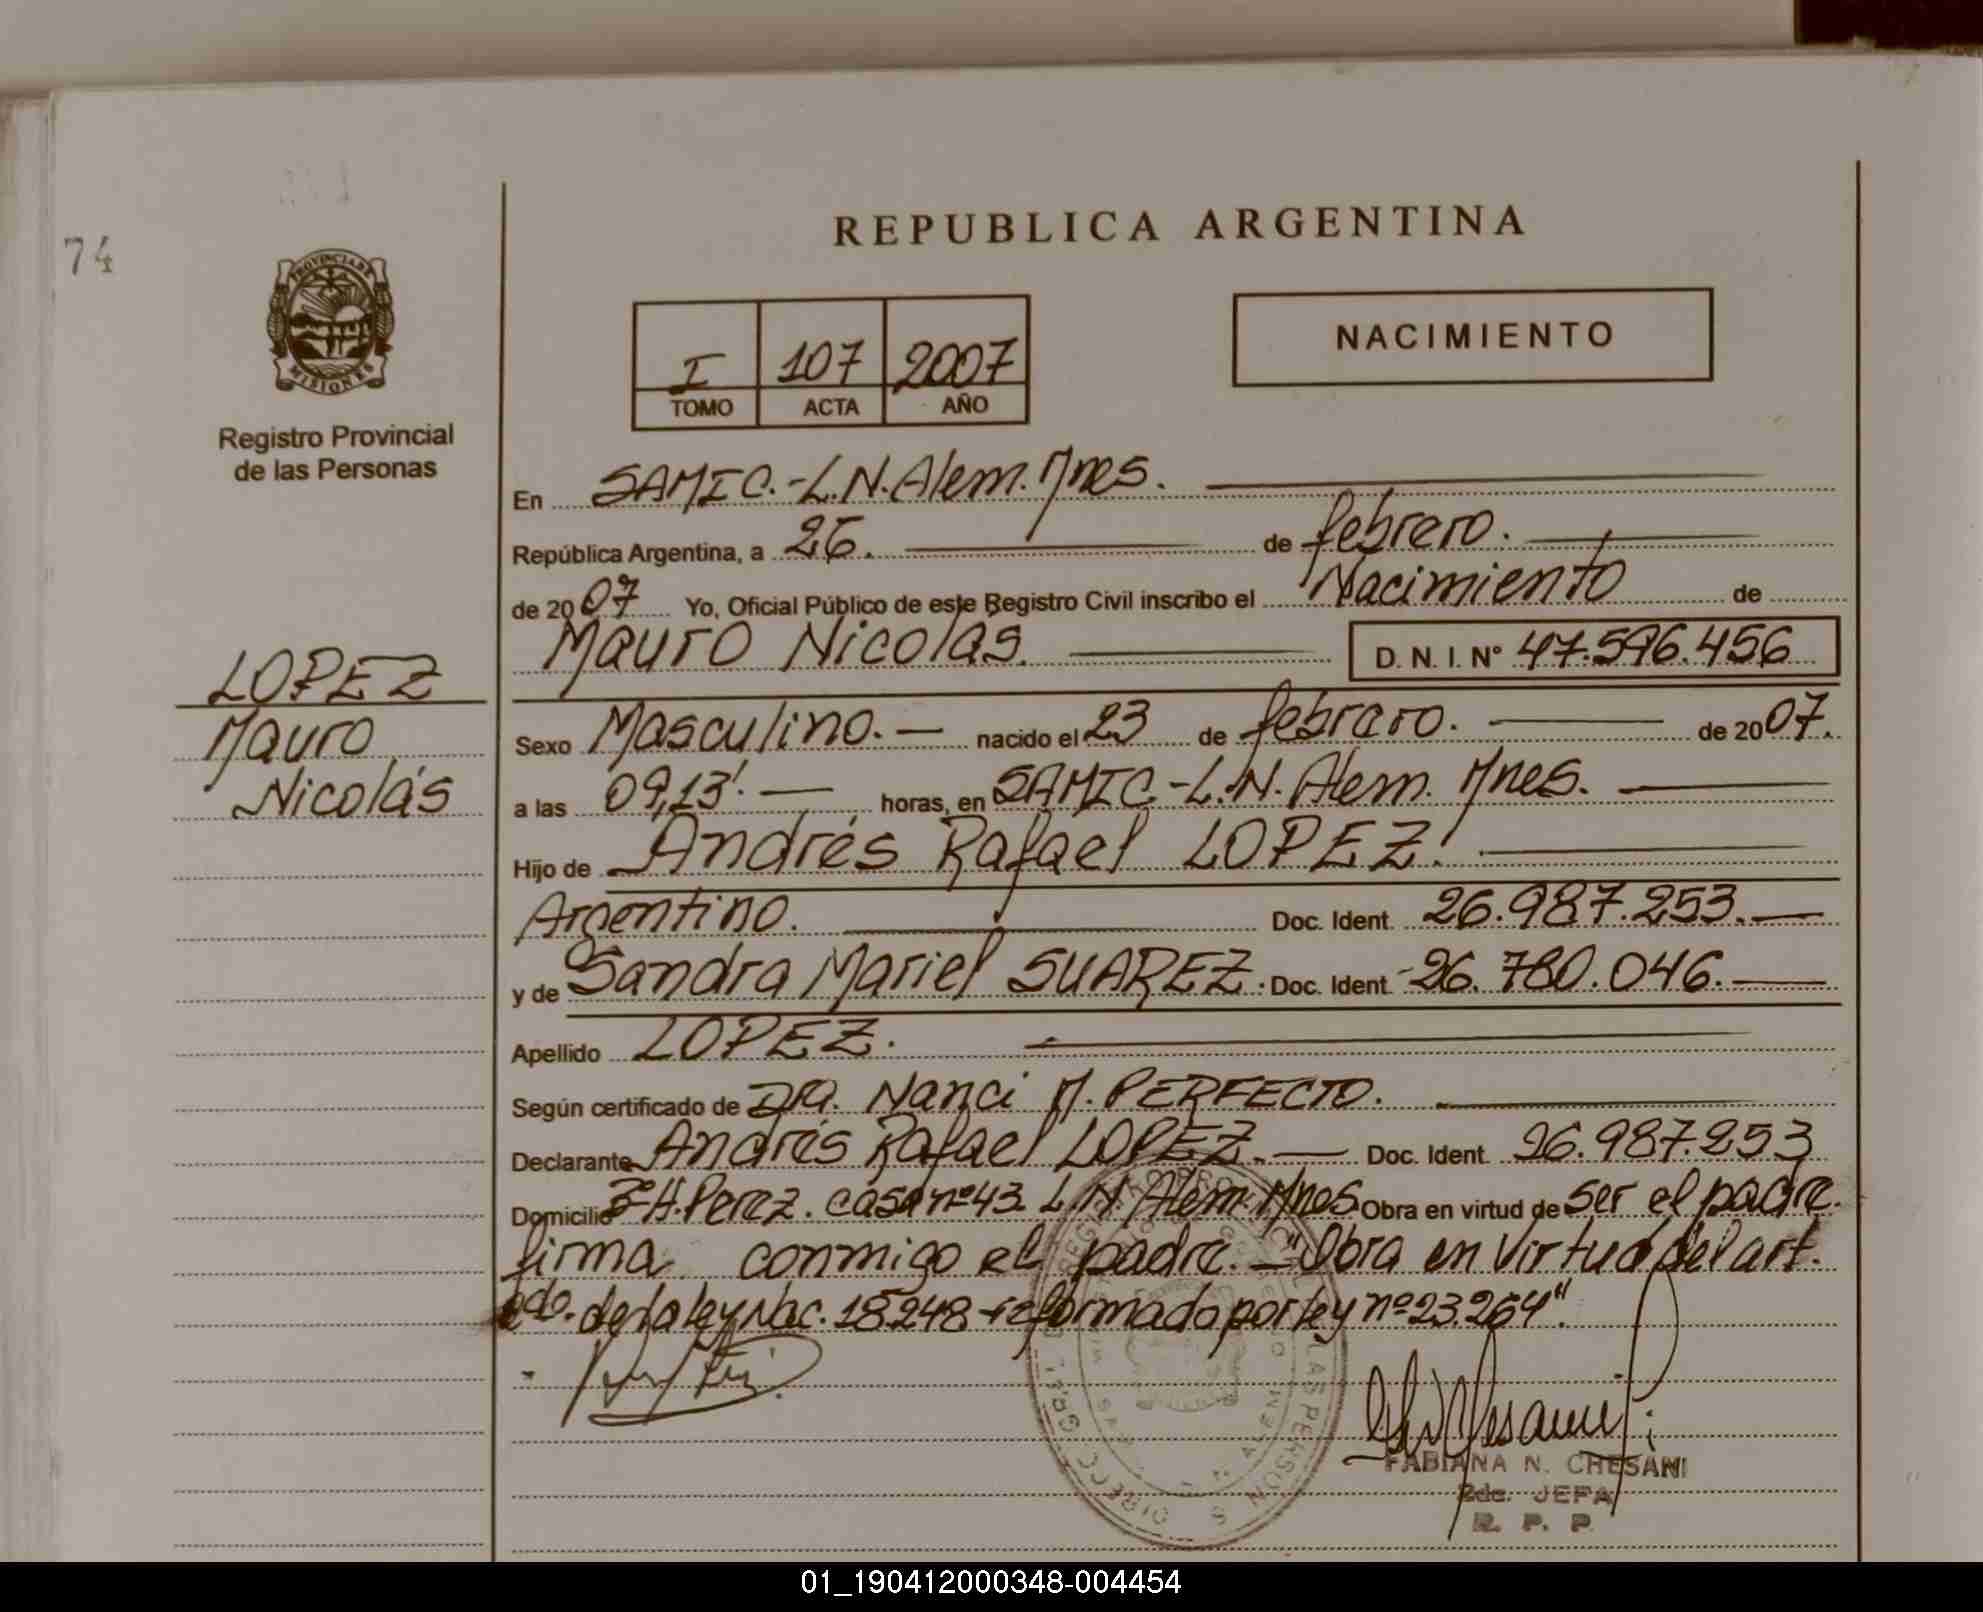 74
REPUBLICA ARGENTINA
PROVINCIA DE
MISIONES
Registro Provincial
de las Personas
I 107 2007
TOMO ACTA AÑO
NACIMIENTO
En SAMIC.-L.N.Alem.Mnes.
República Argentina, a 26. de febrero.
de 2007 Yo, Oficial Público de este Registro Civil inscribo el Nacimiento de
Mauro Nicolás. D. N. I. N° 47.596.456
LOPEZ
Mauro
Nicolás
Sexo Masculino.- nacido el 23 de febrero. de 2007.
a las 09,13'.- horas, en SAMIC.-L.N. Alem. Mnes.
Hijo de Andrés Rafael LOPEZ.
Argentino. Doc. Ident. 26.987.253.-
y de Sandra Mariel SUAREZ. Doc. Ident. 26.780.046.-
Apellido LOPEZ.
Según certificado de Dra. Nanci M. PERFECTO.
Declarante Andrés Rafael LOPEZ.- Doc. Ident. 26.987.253
Domicilio Bº H. Perez. casa nº 43. L.N. Alem. Mnes Obra en virtud de ser el padre.
firma conmigo el padre.- "Obra en virtud del art.
2do. de la ley Nac. 18.248 reformado por ley nº 23.264".
FABIANA N. CHESANI
2da. JEFA
R. P. P.
01_190412000348-004454